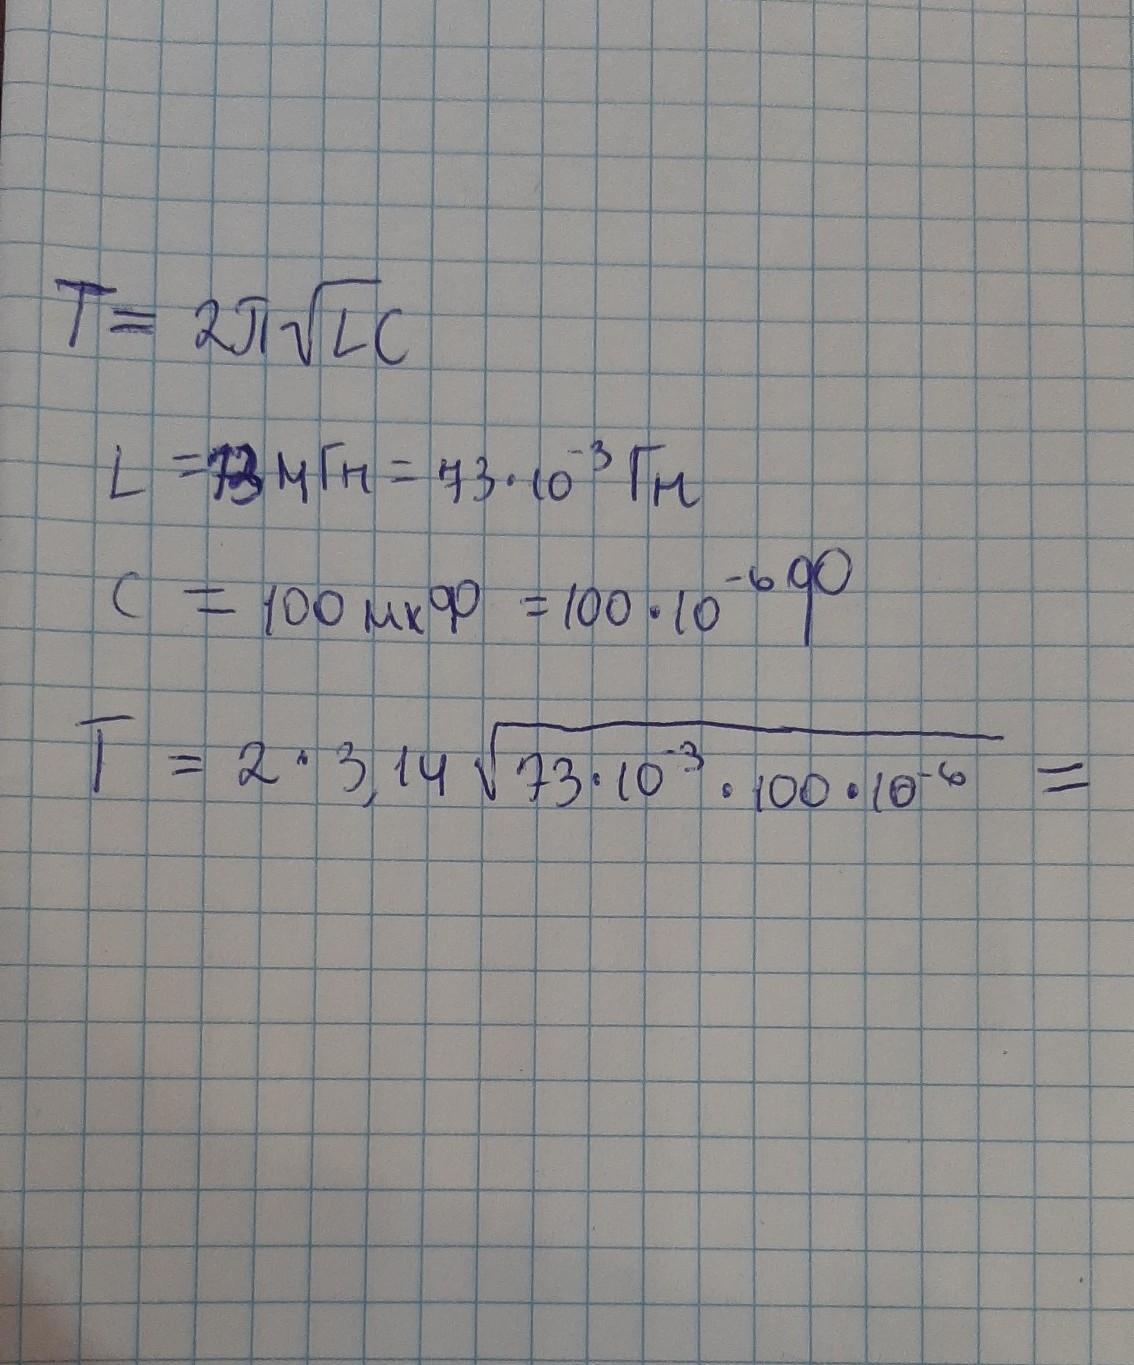 T = 2π√LC
L = 73 мГн = 73·10⁻³ Гн
C = 100 мкФ = 100·10⁻⁶ Ф
T = 2·3,14 √73·10⁻³·100·10⁻⁶ =